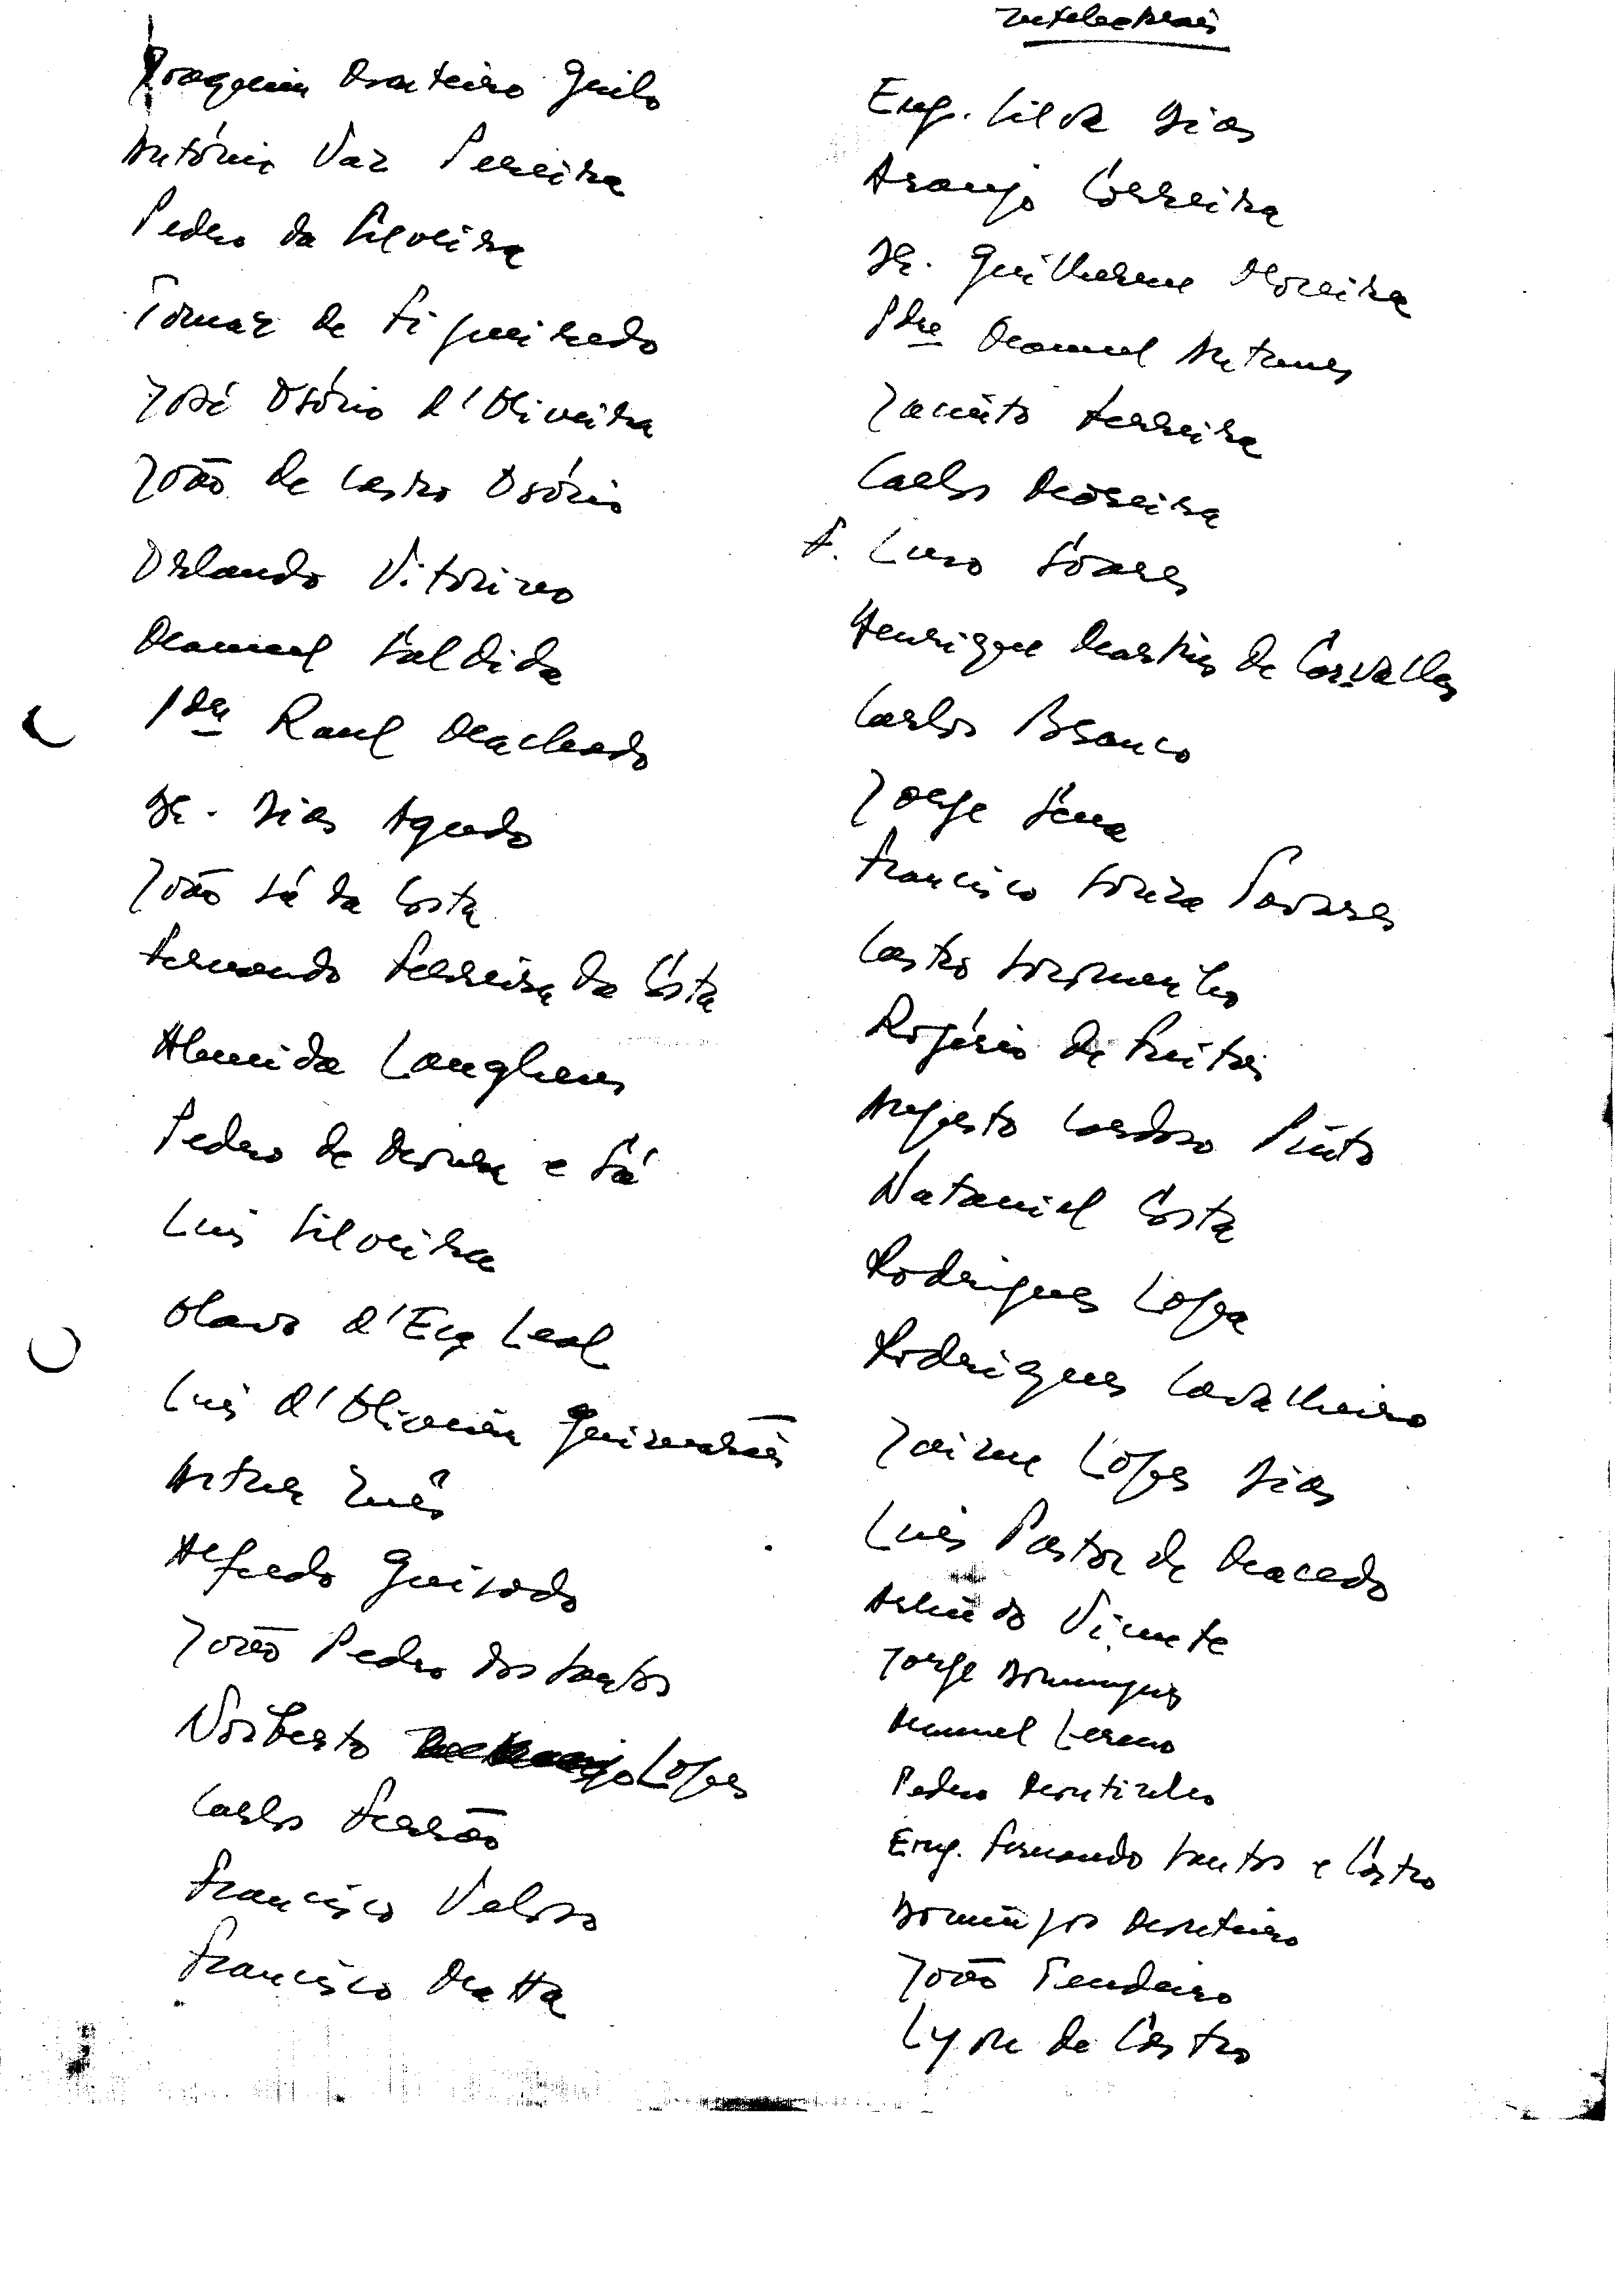 Intelectuais
Joaquim Monteiro Grilo
António Vaz Pereira
Pedro da Silveira
Tomaz de Figueiredo
José Osório d'Oliveira
João de Castro Osório
Orlando Vitorino
Manuel Saldida
Pdre Raul Machado
Dr. Dias Agudo
João Sá da Costa
Fernando Ferreira da Costa
Almeida Langhans
Pedro de Moura e Sá
Luis Silveira
Olavo d'Eça Leal
Luís d'Oliveira Guimarães
Artur Inês
Alfredo Guisado
João Pedro dos Santos
Norberto Lopes
Carlos Ferrão
Francisco Veloso
Francisco Matta
Eng. Silva Dias
Araujo Correira
Dr. Guilherme Moreira
Pdre Manuel Antunes
Jacinto Ferreira
Carlos Moreira
F. Luso Soares
Henrique Martins de Carvalho
Carlos Branco
Jorge Sena
Francisco Souza Tavares
Castro Soromenho
Rogério de Freitas
Augusto Cardoso Pinto
Nataniel Costa
Rodrigues Lapa
Rodrigues Cavalheiro
Jaime Lopes Dias
Luís Pastor de Macedo
Arlindo Vicente
Jorge Domingues
Manuel Lereno
Pedro Moutinho
Eng. Fernando Santos e Castro
Domingos Monteiro
João Tendeiro
Lyon de Castro